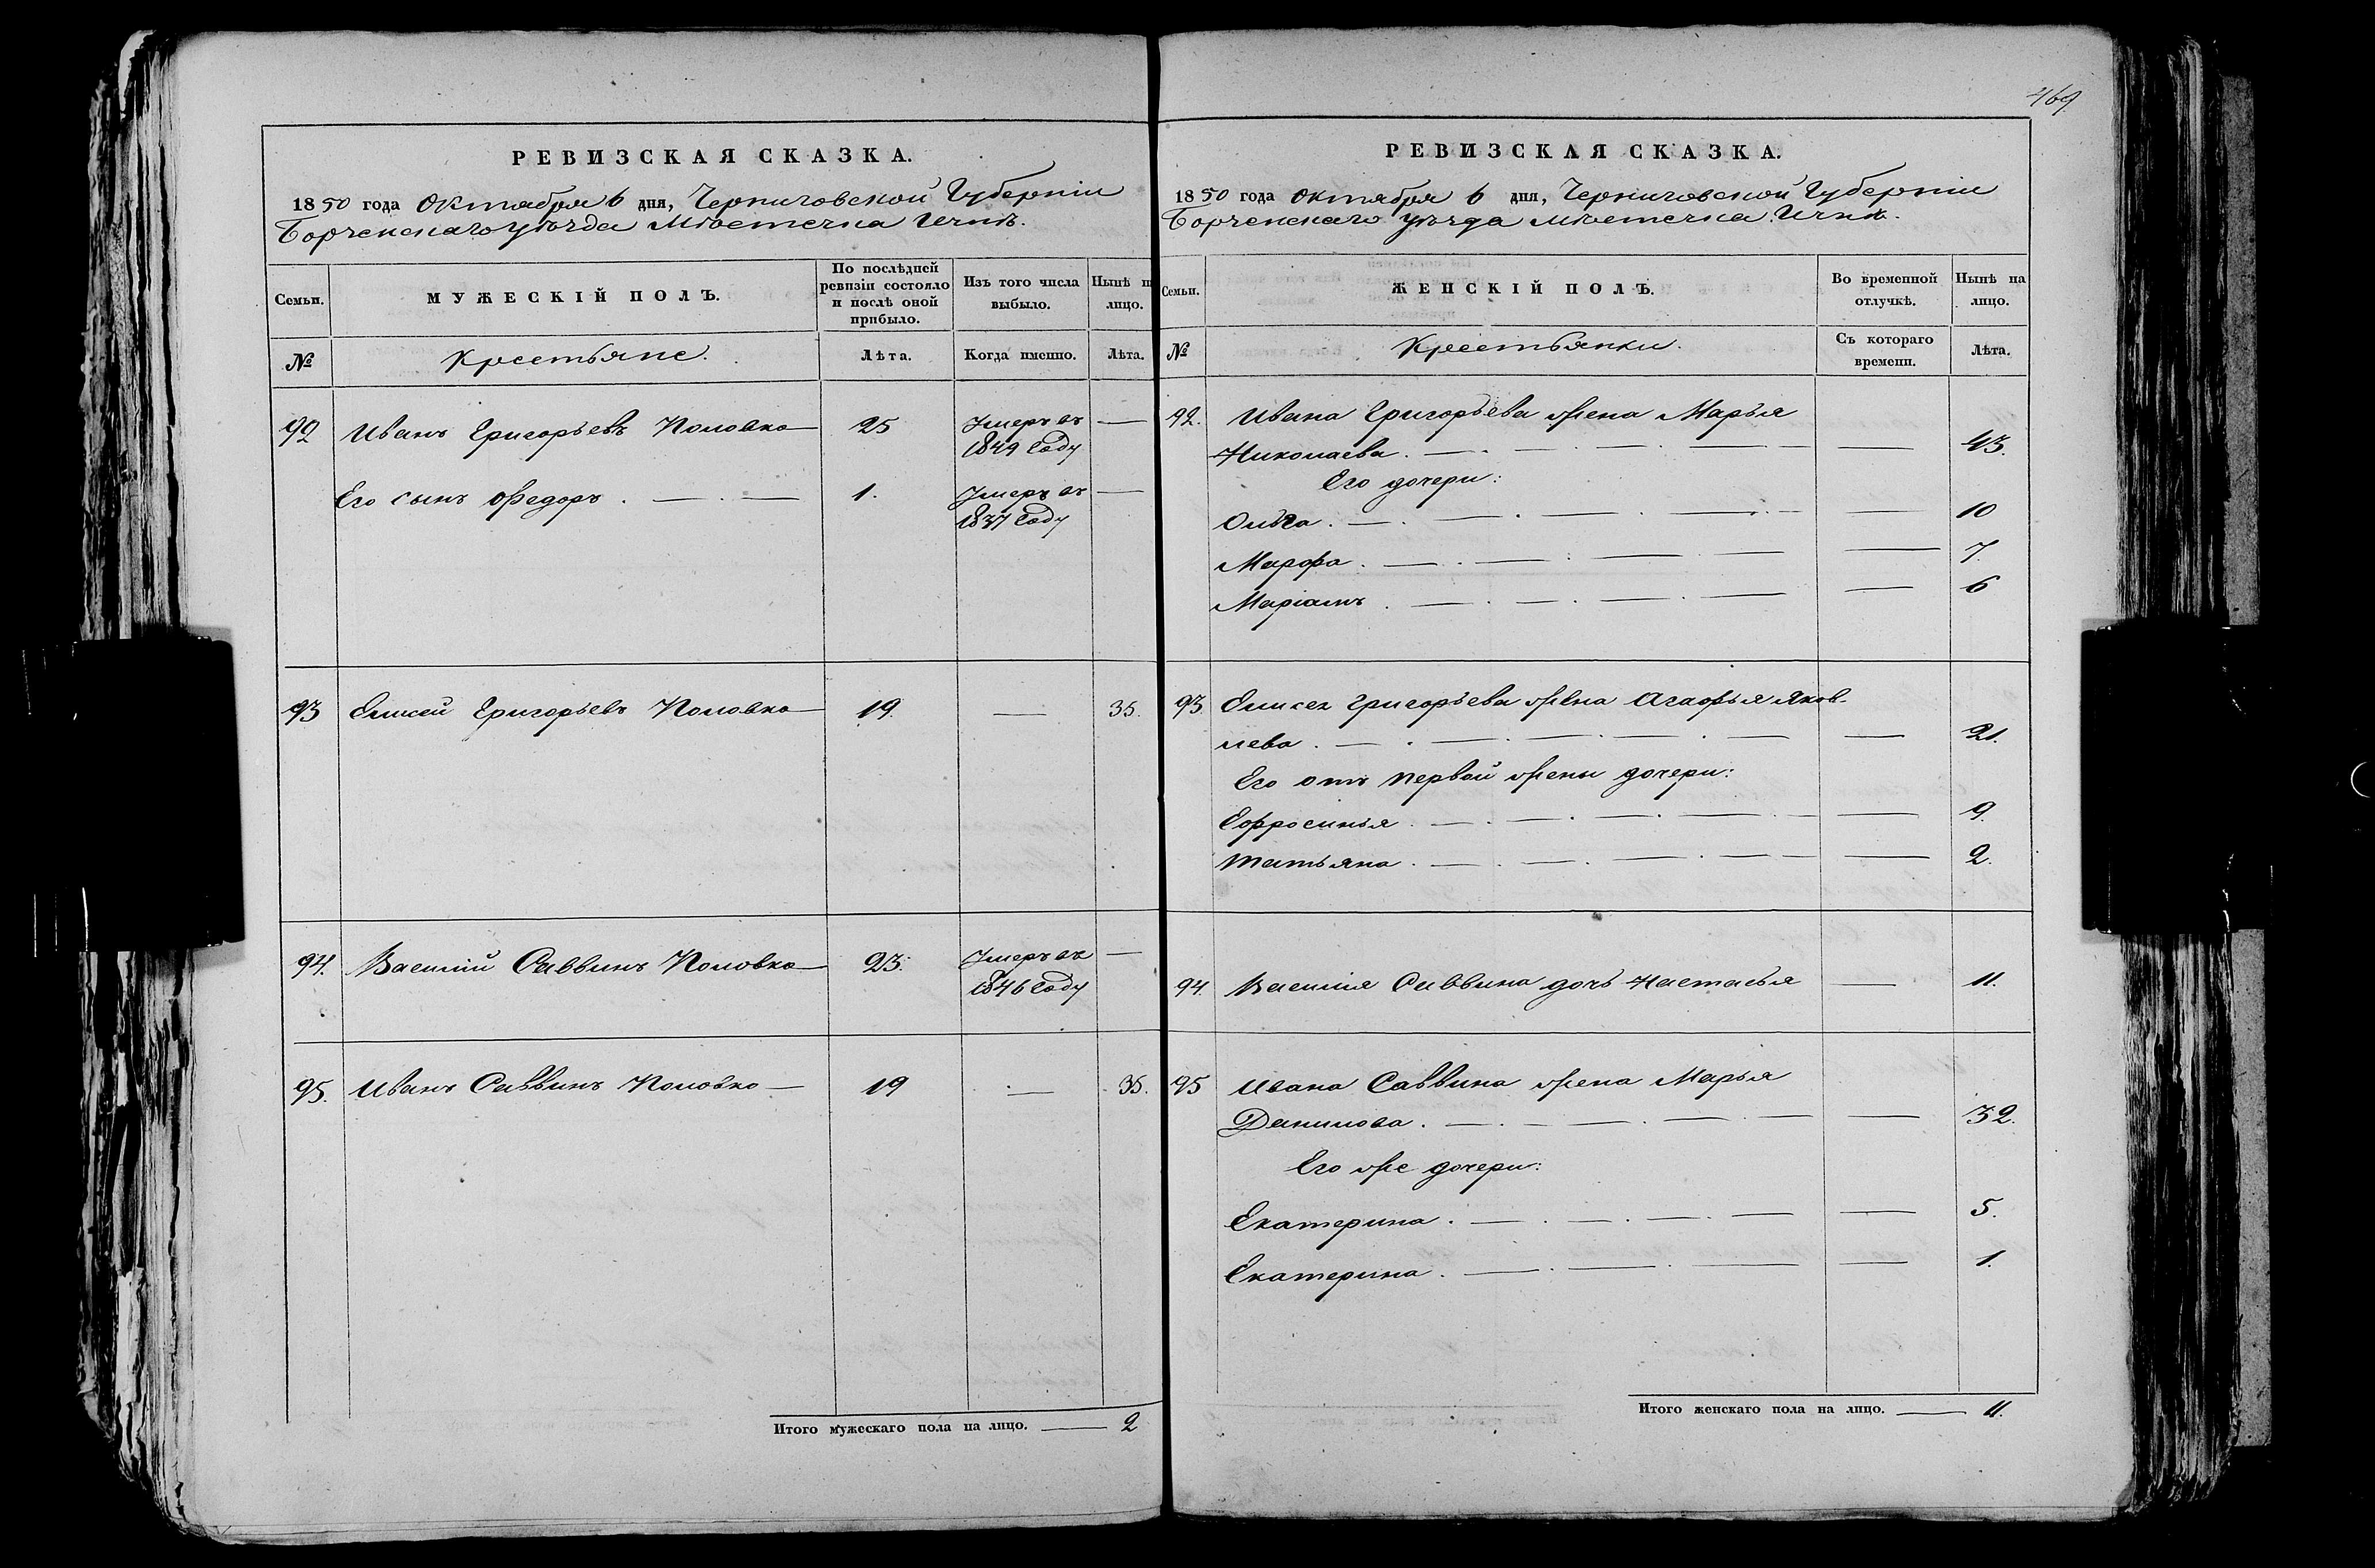 РЕВИЗСКАЯ СКАЗКА.
1850 года Октября 6 дня, Черниговской Губерніи
Борзенскаго уѣзда мѣстечка Ични.
Семьи.
МУЖЕСКІЙ ПОЛЪ.
По послѣдней
ревизіи состояло
и послѣ оной
прибыло.
Изъ того числа
выбыло.
Нынѣ н
лицо.
№
Крестьяне.
Лѣта.
Когда именно.
Лѣта.
92 Иванъ Григорьевъ Половко 25 Умеръ въ —
1849 Году
Его сынъ Ѳедоръ . — . — 1. Умеръ въ —
1837 Году
93 Елисей Григорьевъ Половко 19. — 35.
94. Василій Саввинъ Половко 23. Умеръ въ —
1846 Году
95. Иванъ Саввинъ Половко — 19 — 35.
Итого мужескаго пола на лицо. — 2
469
РЕВИЗСКАЯ СКАЗКА.
1850 года Октября 6 дня, Черниговской Губерніи
Борзенскаго уѣзда мѣстечка Ични.
Семьи.
ЖЕНСКІЙ ПОЛЪ.
Во временной
отлучкѣ.
Нынѣ на
лицо.
№
Крестьянки.
Съ котораго
времени.
Лѣта.
92. Ивана Григорьева жена Марья
Николаева . — . — . — — 43.
Его дочери:
Ольга . — . — . — . — — 10
Марѳа . — . — . — . — — 7.
Маріамъ . — . — . — . — — 6
93. Елисея Григорьева жена Агафья Яков-
лева . — . — . — . — . — — 21.
Его отъ первой жены дочери:
Ефросинья . — . — . — . — . — — 9.
Татьяна . — . — . — . — — 2.
94. Василія Саввина дочь Настасья — 11.
95 Ивана Саввина жена Марья
Данилова . — . — . — . — — 32.
Его же дочери:
Екатерина . — . — . — . — — 5.
Екатерина . — . — . — — 1.
Итого женскаго пола на лицо. — 11.